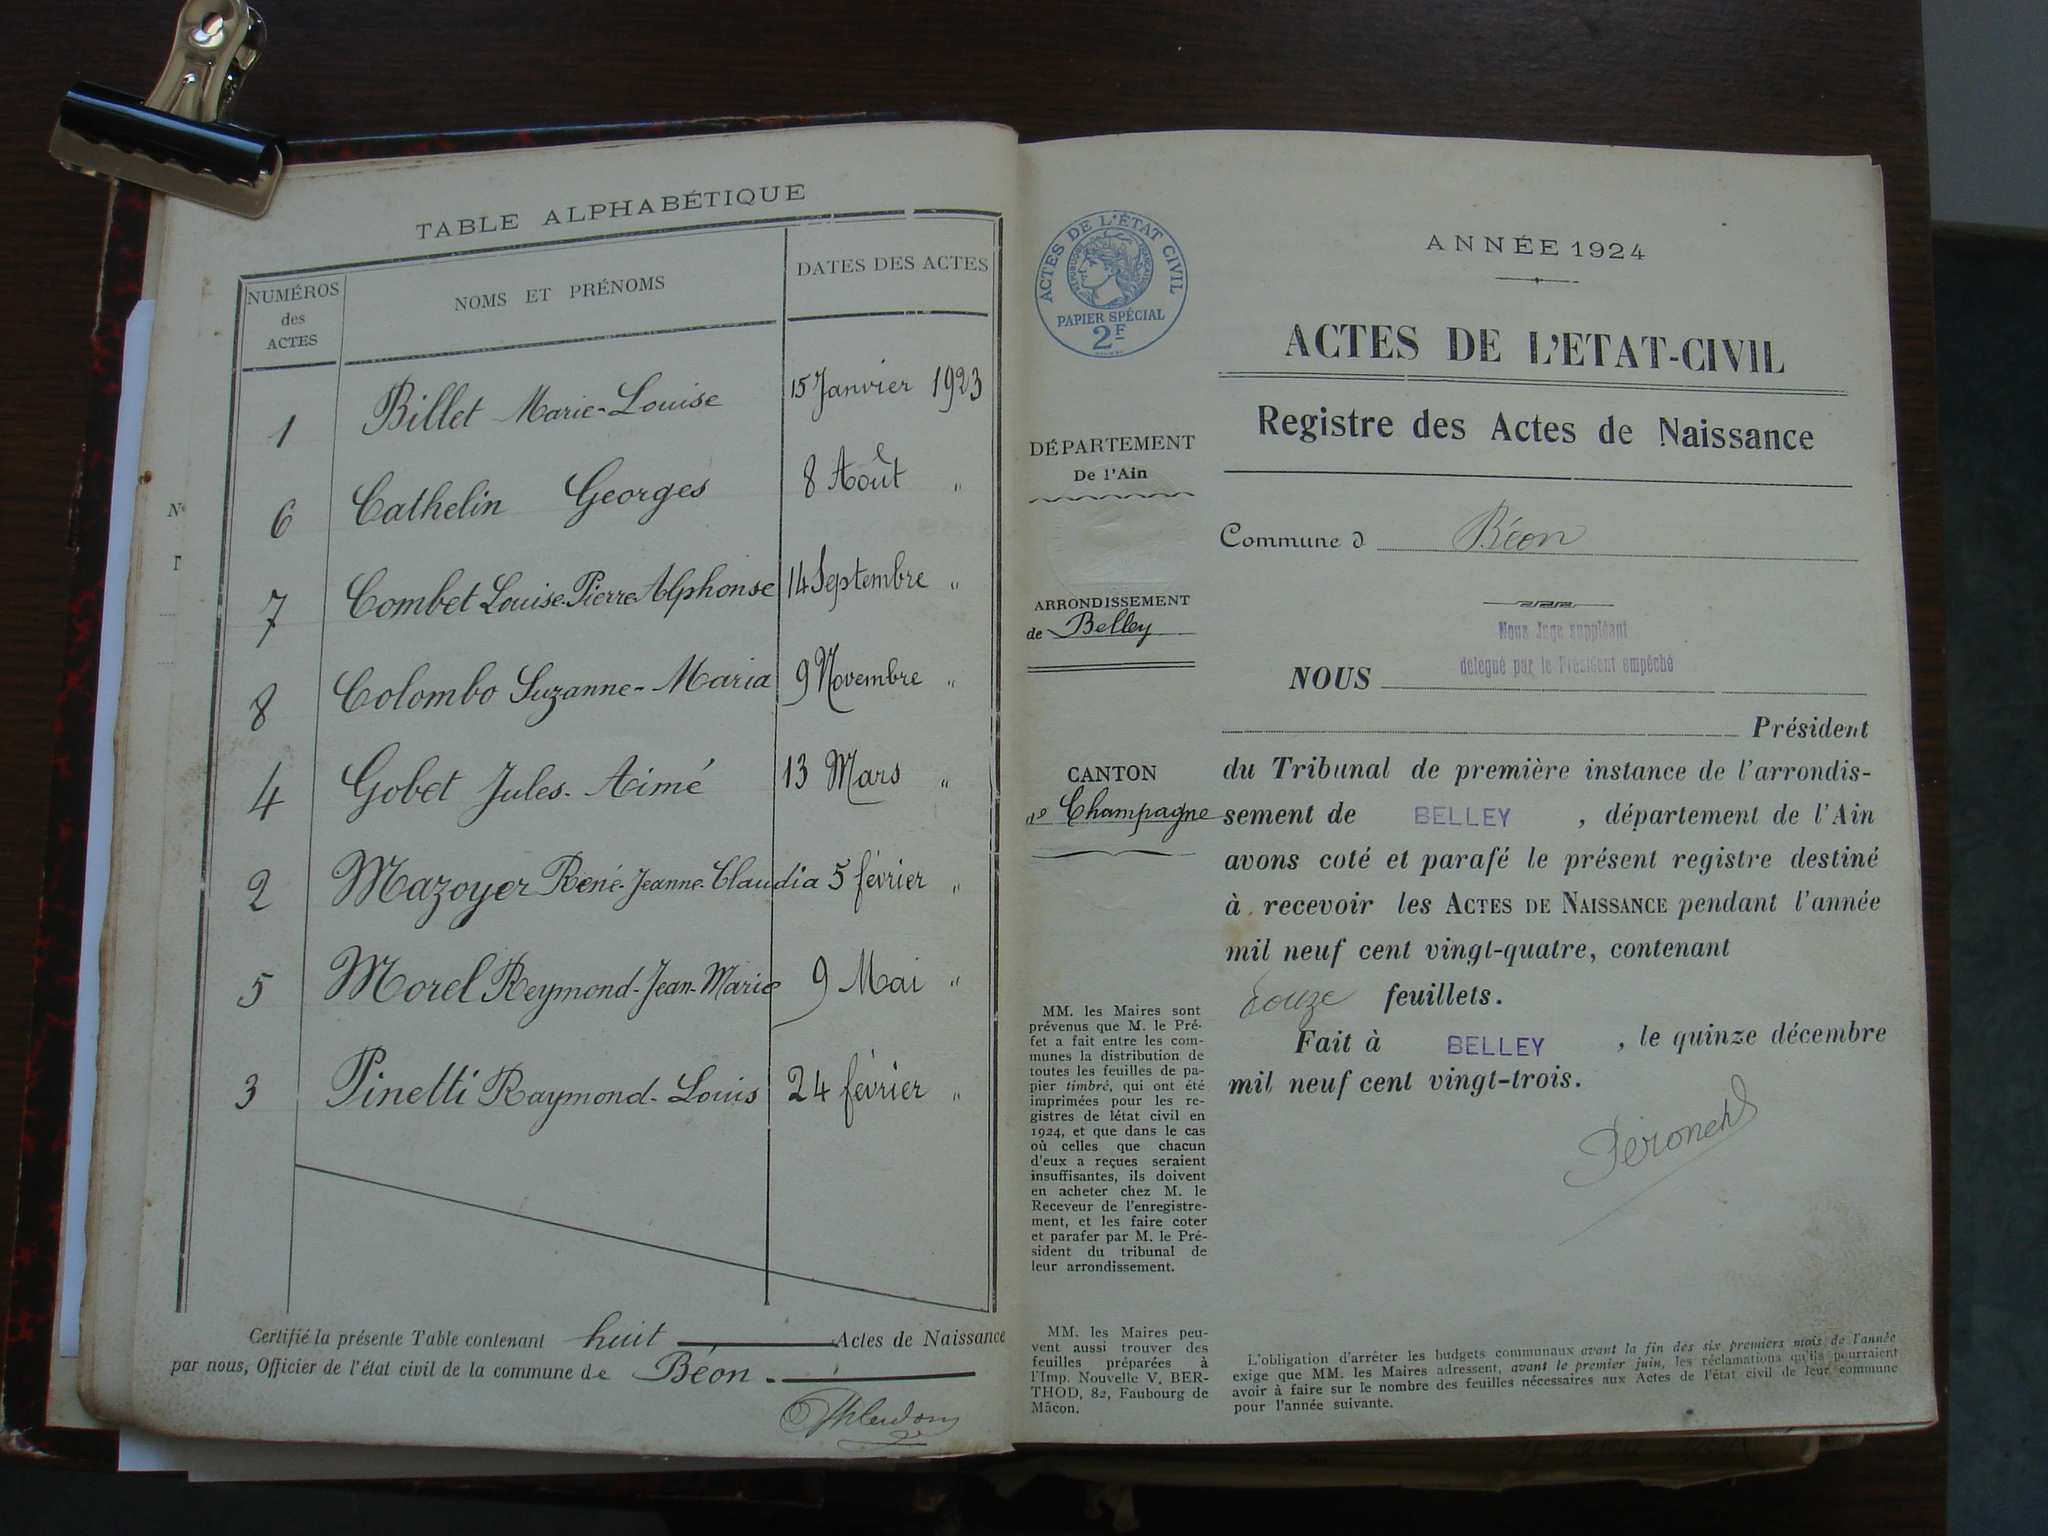 TABLE ALPHABÉTIQUE
NUMÉROS
des
ACTES
NOMS ET PRÉNOMS
DATES DES ACTES
1 Billet Marie-Louise 15 Janvier 1923
6 Cathelin Georges 8 Août "
7 Combet Louise-Pierre-Alphonse 14 Septembre "
8 Colombo Suzanne-Maria 9 Novembre "
4 Gobet Jules-Aimé 13 Mars "
2 Mazoyer René-Jeanne-Claudia 5 février "
5 Morel Reymond-Jean-Marie 9 Mai "
3 Pinetti Raymond-Louis 24 février "
Certifié la présente Table contenant huit Actes de Naissance
par nous, Officier de l'état civil de la commune de Béon.
ACTES DE L'ÉTAT CIVIL
RÉPUBLIQUE FRANÇAISE
PAPIER SPÉCIAL
2F
DÉPARTEMENT
De l'Ain
ARRONDISSEMENT
de Belley
CANTON
de Champagne
MM. les Maires sont
prévenus que M. le Pré-
fet a fait entre les com-
munes la distribution de
toutes les feuilles de pa-
pier timbré, qui ont été
imprimées pour les re-
gistres de létat civil en
1924, et que dans le cas
où celles que chacun
d'eux a reçues seraient
insuffisantes, ils doivent
en acheter chez M. le
Receveur de l'enregistre-
ment, et les faire coter
et parafer par M. le Pré-
sident du tribunal de
leur arrondissement.
MM. les Maires peu-
vent aussi trouver des
feuilles préparées à
l'Imp. Nouvelle V. BER-
THOD, 82, Faubourg de
Mâcon.
ANNÉE 1924
ACTES DE L'ETAT-CIVIL
Registre des Actes de Naissance
Commune d Béon
Nous Juge suppléant
délégué par le Président empêché
NOUS
Président
du Tribunal de première instance de l'arrondis-
sement de BELLEY, département de l'Ain
avons coté et parafé le présent registre destiné
à recevoir les ACTES DE NAISSANCE pendant l'année
mil neuf cent vingt-quatre, contenant
douze feuillets.
Fait à BELLEY, le quinze décembre
mil neuf cent vingt-trois.
L'obligation d'arrêter les budgets communaux avant la fin des six premiers mois de l'année
exige que MM. les Maires adressent, avant le premier juin, les réclamations qu'ils pourraient
avoir à faire sur le nombre des feuilles nécessaires aux Actes de l'état civil de leur commune
pour l'année suivante.